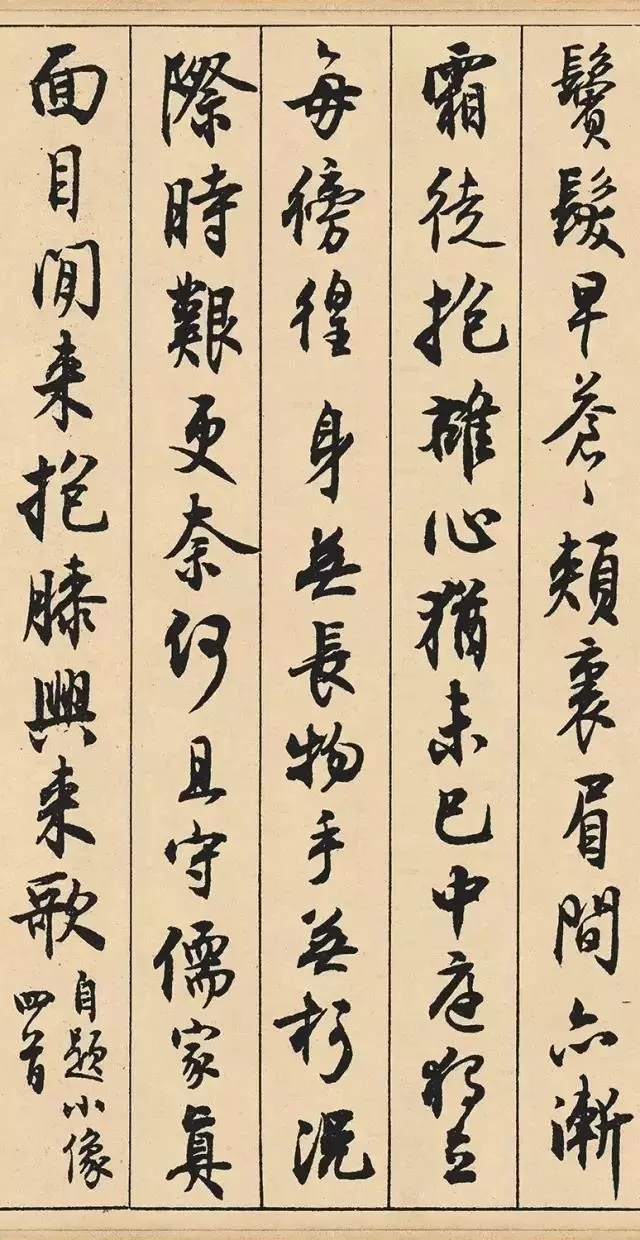 鬢髮早蒼々頰裏眉間亦漸
霜徒抱雄心猶未已中庭獨立
每徬徨 身無長物手無柯況
際時艱更奈何且守儒家真
面目閒來抱膝興來歌
自題小像
四首